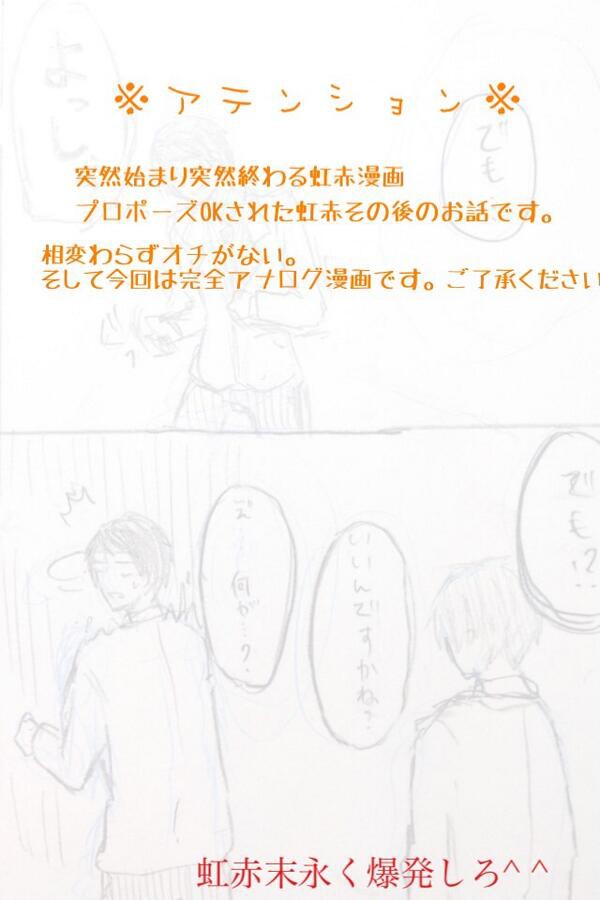 ※アテンション※
突然始まり突然終わる虹赤漫画
プロポーズOKされた虹赤その後のお話です。
相変わらずオチがない。
そして今回は完全アナログ漫画です。ご了承ください
よっし
でも
でも!?
いいんですかね?
え
何が…?
虹赤末永く爆発しろ^ ^